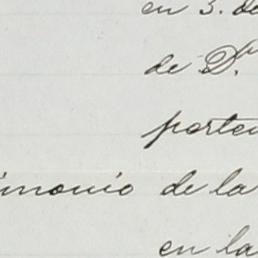 en 3. de
de D.ª
porten
imonio de la
en la